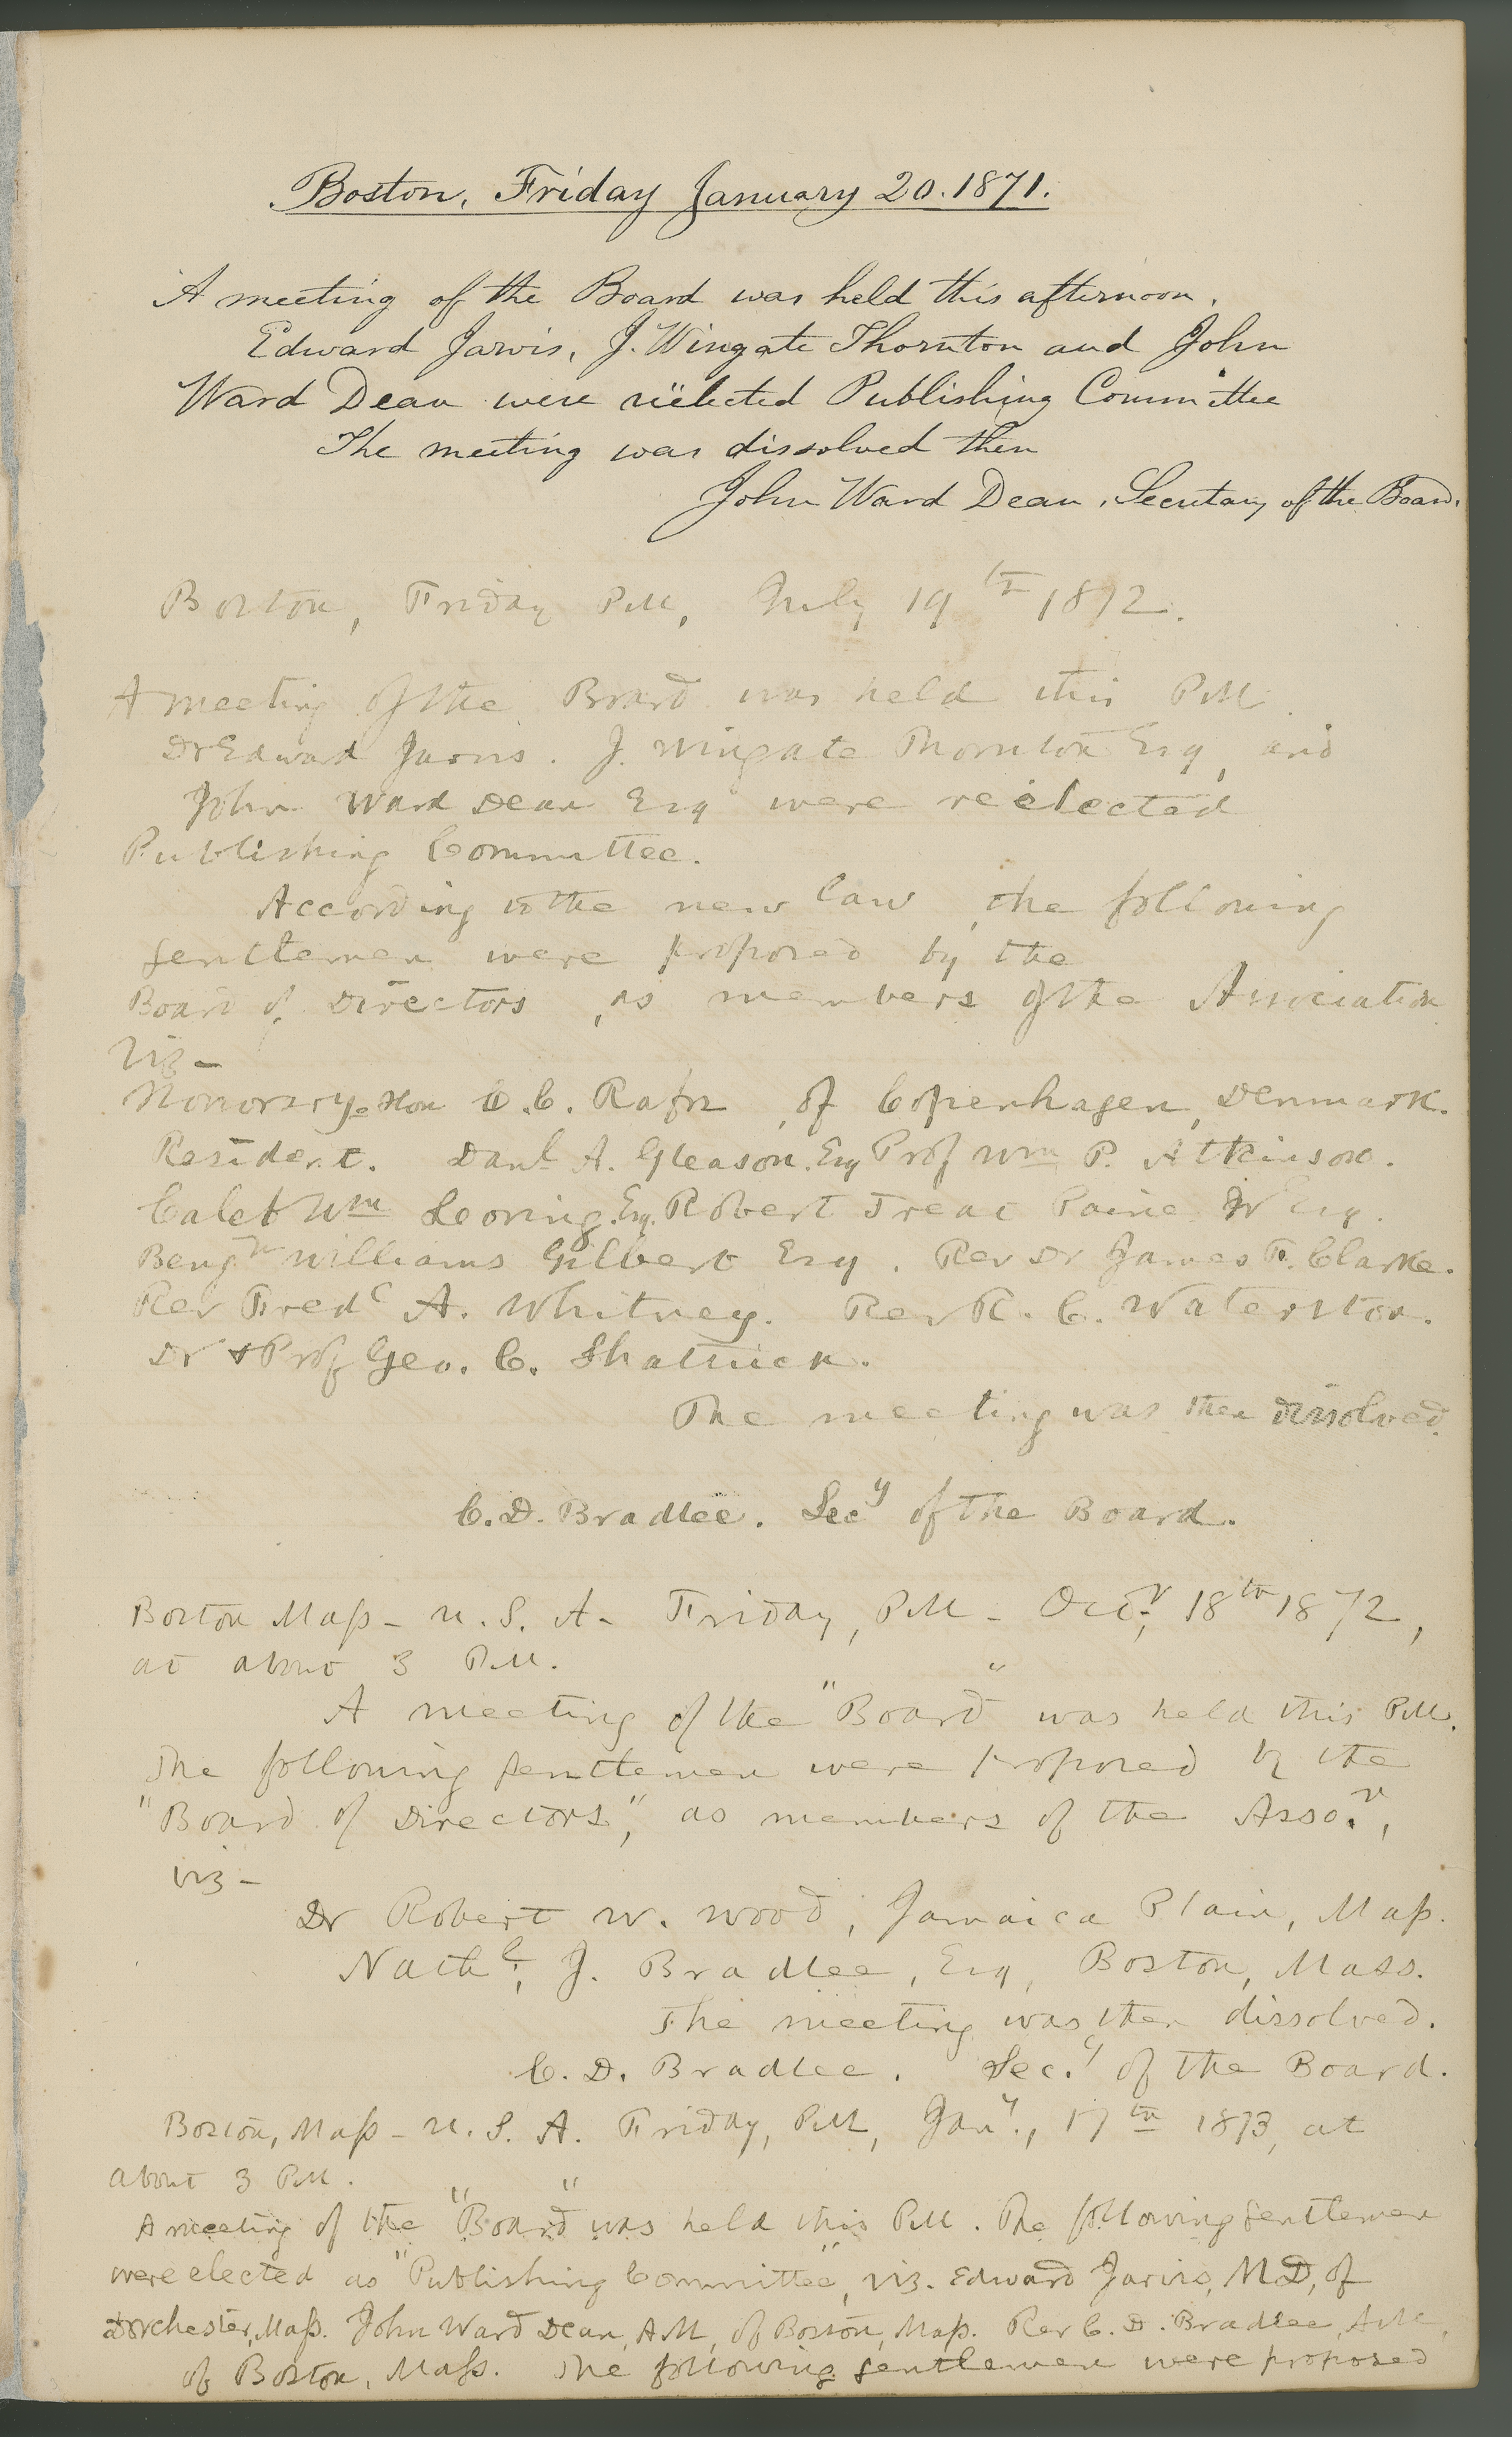 Boston, Friday January 20. 1871.
A meeting of the Board was held this afternoon.
Edward Jarvis, J. Wingate Thornton and John
Ward Dean were reëlected Publishing Committee
The meeting was dissolved then
John Ward Dean, Secretary of the Board.
Boston, Friday P.M, July 19th 1872.
A meeting of the Board was held this P.M.
Dr Edward Jarvis. J. Wingate Thornton Esq, and
John Ward Dean Esq were reelected
Publishing Committee.
According to the new law, the following
gentlemen were proposed by the
Board of Directors, as members of the Association
viz-
Honorary. Hon C. C. Rafn, of Copenhagen, Denmark.
Resident. Danl A. Gleason. Esq Prof Wm P. Atkinson.
Caleb Wm Loring. Esq. Robert Treat Paine Jr Esq.
Benjn Williams Gilbert Esq. Rev Dr James F. Clarke.
Rev Fredc A. Whitney. Rev R. C. Waterston.
Dr & Prof Geo. C. Shattuck.
The meeting was then dissolved.
C. D. Bradlee. Secy of the Board.
Boston Mass - U. S. A - Friday, P.M - Octr, 18th 1872,
at about 3 P.M.
A meeting of the "Board" was held this P.M.
The following gentlemen were proposed by the
"Board of Directors," as members of the Asso.n,
viz -
Dr Robert W. Wood, Jamaica Plain, Mass.
Nathl, J. Bradlee, Esq, Boston, Mass.
The meeting was then dissolved.
C. D. Bradlee. Sec.y of the Board.
Boston, Mass - U. S. A. Friday, P.M, Jany., 17th 1873, at
about 3 P.M.
A meeting of the "Board" was held this P.M. The following gentlemen
were elected as "Publishing Committee", viz. Edward Jarvis, M.D, of
Dorchester, Mass. John Ward Dean, A.M, of Boston, Mass. Rev C. D. Bradlee, A.M,
of Boston, Mass. The following gentlemen were proposed